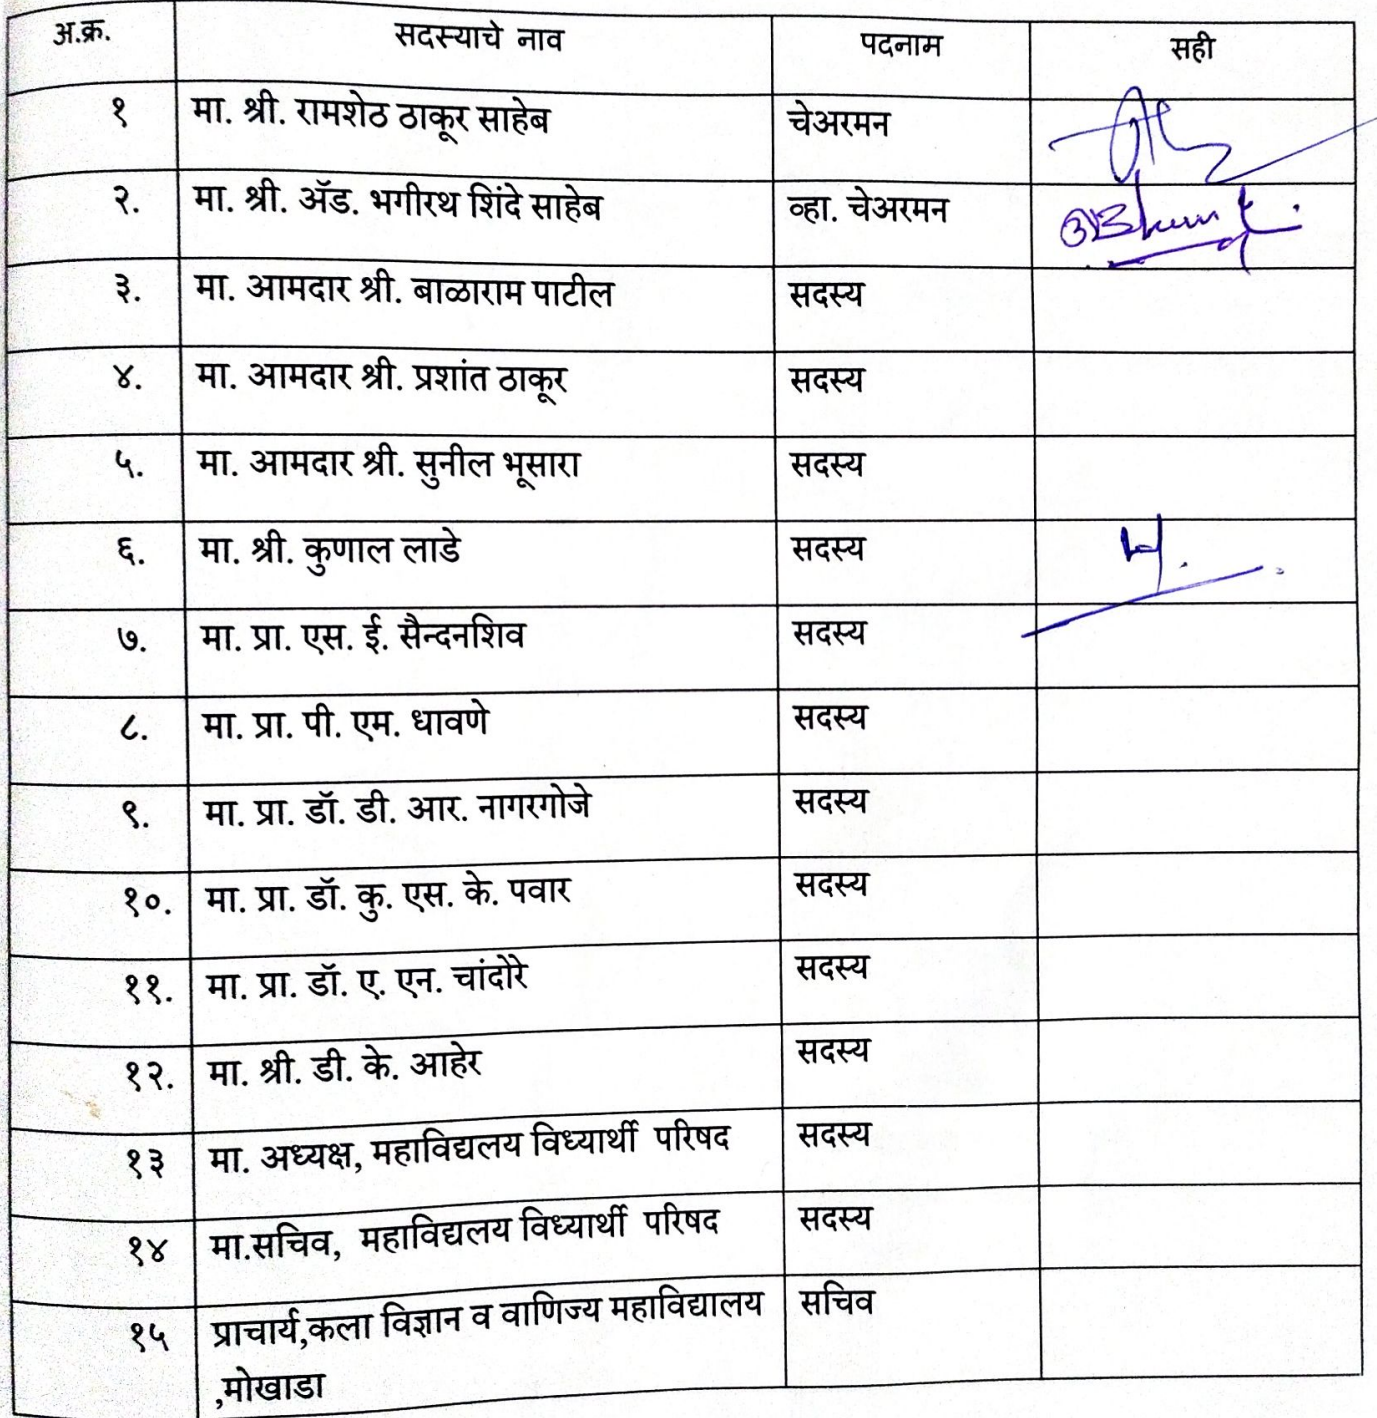 अ.क्र. सदस्याचे नाव पदनाम सही
१ मा. श्री. रामशेठ ठाकूर साहेब चेअरमन
२. मा. श्री. ॲड. भगीरथ शिंदे साहेब व्हा. चेअरमन
३. मा. आमदार श्री. बाळाराम पाटील सदस्य
४. मा. आमदार श्री. प्रशांत ठाकूर सदस्य
५. मा. आमदार श्री. सुनील भूसारा सदस्य
६. मा. श्री. कुणाल लाडे सदस्य
७. मा. प्रा. एस. ई. सैन्दनशिव सदस्य
८. मा. प्रा. पी. एम. धावणे सदस्य
९. मा. प्रा. डॉ. डी. आर. नागरगोजे सदस्य
१०. मा. प्रा. डॉ. कु. एस. के. पवार सदस्य
११. मा. प्रा. डॉ. ए. एन. चांदोरे सदस्य
१२. मा. श्री. डी. के. आहेर सदस्य
१३ मा. अध्यक्ष, महाविद्यलय विध्यार्थी परिषद सदस्य
१४ मा.सचिव, महाविद्यलय विध्यार्थी परिषद सदस्य
१५ प्राचार्य,कला विज्ञान व वाणिज्य महाविद्यालय सचिव
,मोखाडा